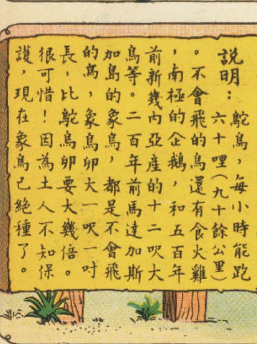 說明：鴕鳥，每小時能跑
六十哩（九十餘公里
。不會飛的鳥還有食火雞
，南極的企鵝，和五百年
前新幾內亞產的十二呎大
鳥等。二百年前馬達加斯
加島的象鳥，都是不會飛
的鳥，象鳥卵大一呎一吋
長，比鴕鳥卵要大幾倍。
很可惜！因為土人不知保
護，現在象鳥已絕種了。